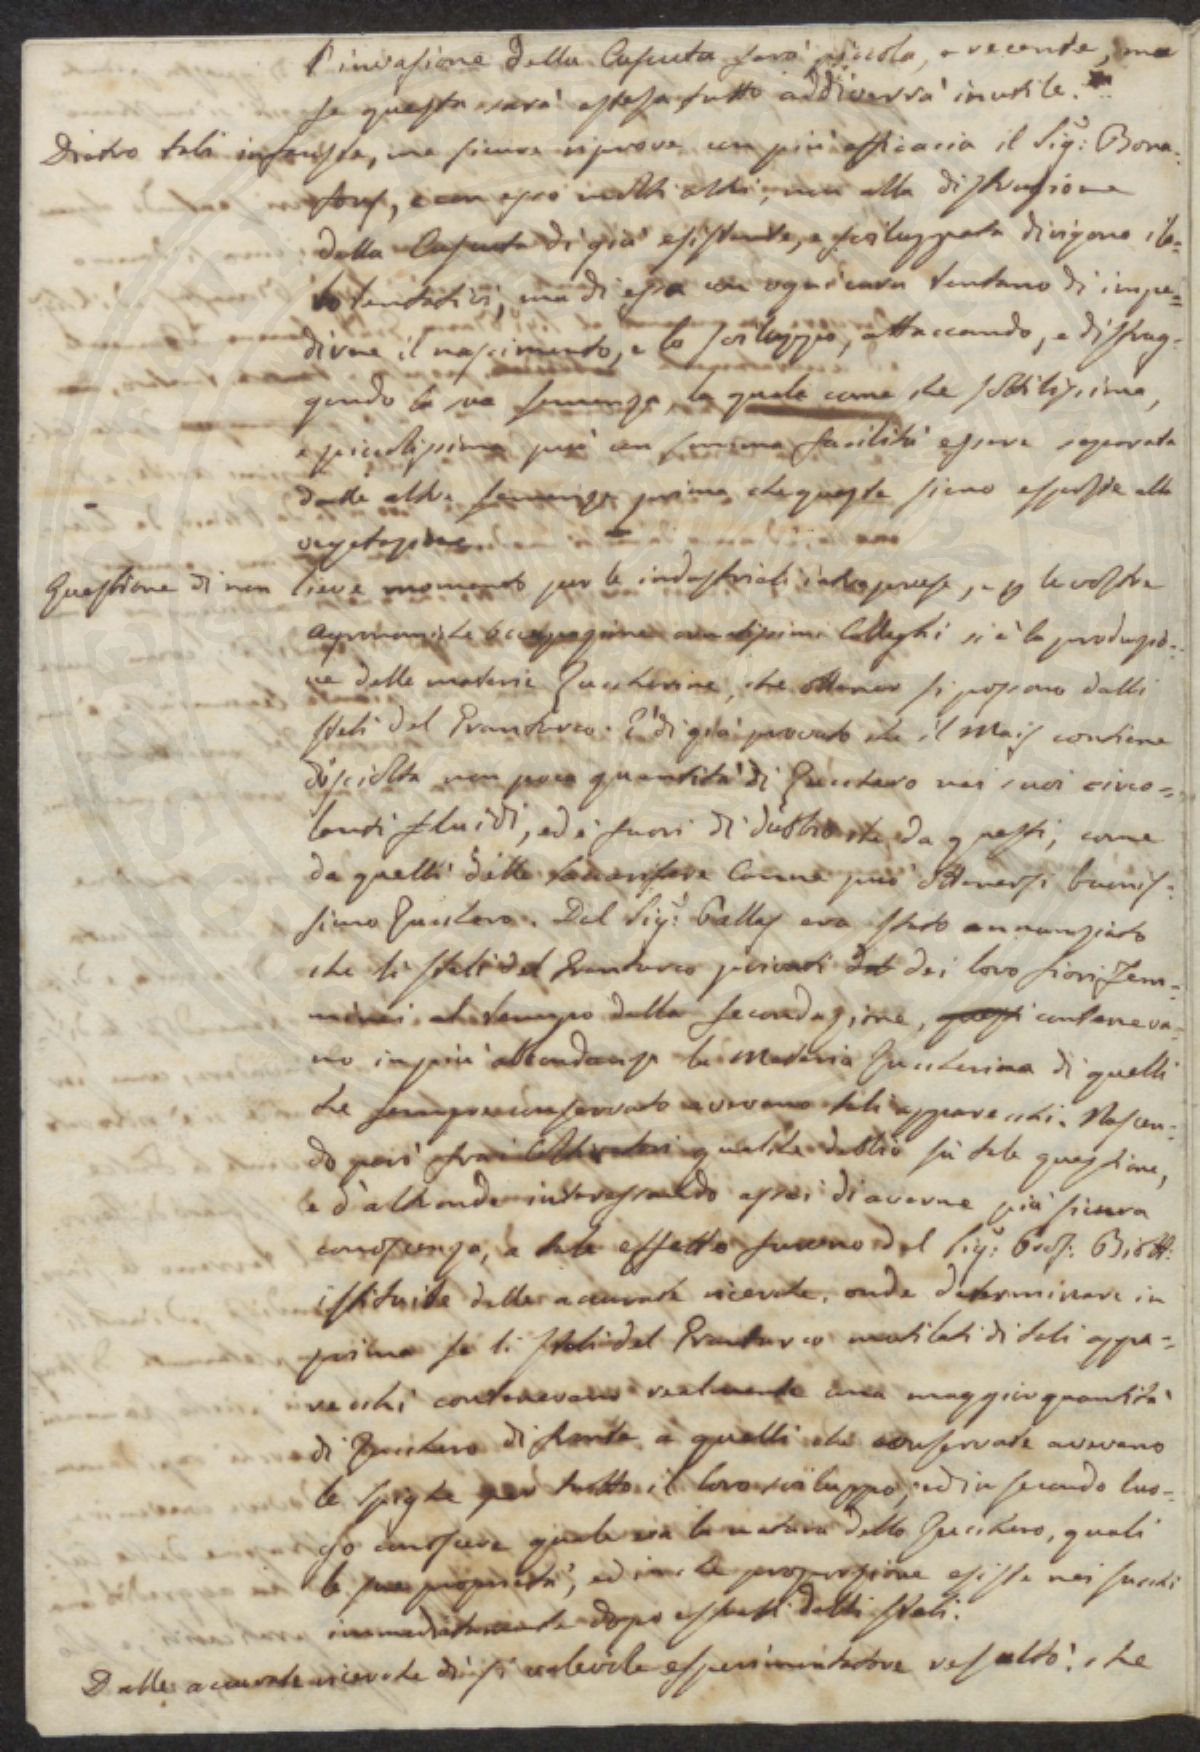 l'invasione della Cuscuta sarà piccola, e recente, ma
se questa sarà estesa tutto addiverrà inutile.
Dietro tali infauste, ma sicure riprove con più efficacia il Sig.r Bona=
fous, e con esso molti altri, non alla distruzione
della Cuscuta di già esistente, e sviluppata dirigono i lo=
ro tentativi, ma di essa con ogni cura tentano di impe=
dirne il nascimento, e lo sviluppo, attaccando, e distrug=
gendo la semenza, la quale come che sottilissima,
e piccolissima può con somma facilità essere separata
dalle altre semenze prima che queste sieno esposte alla
vegetazione.
Questione di non lieve momento per le industriali intraprese, e p le vostre
agronomiche occupazioni ornatissimi Colleghi si è la produzio=
ne delle materie Zuccherine, che ottener si possono dalli
steli del Granturco. È di già provato che il Mais contiene
disciolta non poca quantità di Zucchero nei suoi circo=
lanti fluidi, ed è fuori di dubbio che da questi, come
da quelli delle saccarifere Canne può ottenersi buonis=
simo Zucchero. Dal Sig.r Pallas era stato annunziato
che li steli del Granturco privati dei loro fiori Fem=
minei al tempo della fecondazione, conteneva=
no in più abbondanza la Materia Zuccherina di quelli
che sempre conservato avevano tali apparecchi. Nascen=
do però frai Coltivatori qualche dubbio su tale questione,
e d'altronde interessando assai di averne più sicura
conoscenza, a tale effetto furono dal Sig.r Prof.
istituite delle accurate ricerche, onde determinare in
prima se li steli del Granturco mutilati di tali appa=
recchi contenevano realmente una maggior quantità
di Zucchero di fronte a quelli che conservate avevano
le spighe per tutto il loro sviluppo, ed in secondo luo=
go conoscere quale sia la natura dello Zucchero, quali
le sue proprietà, ed in che proporzione esiste nei succhi
immediatamente dopo estratti dalli steli.
Dalle accurate ricerche di sì valevole esperimentatore resultò: che